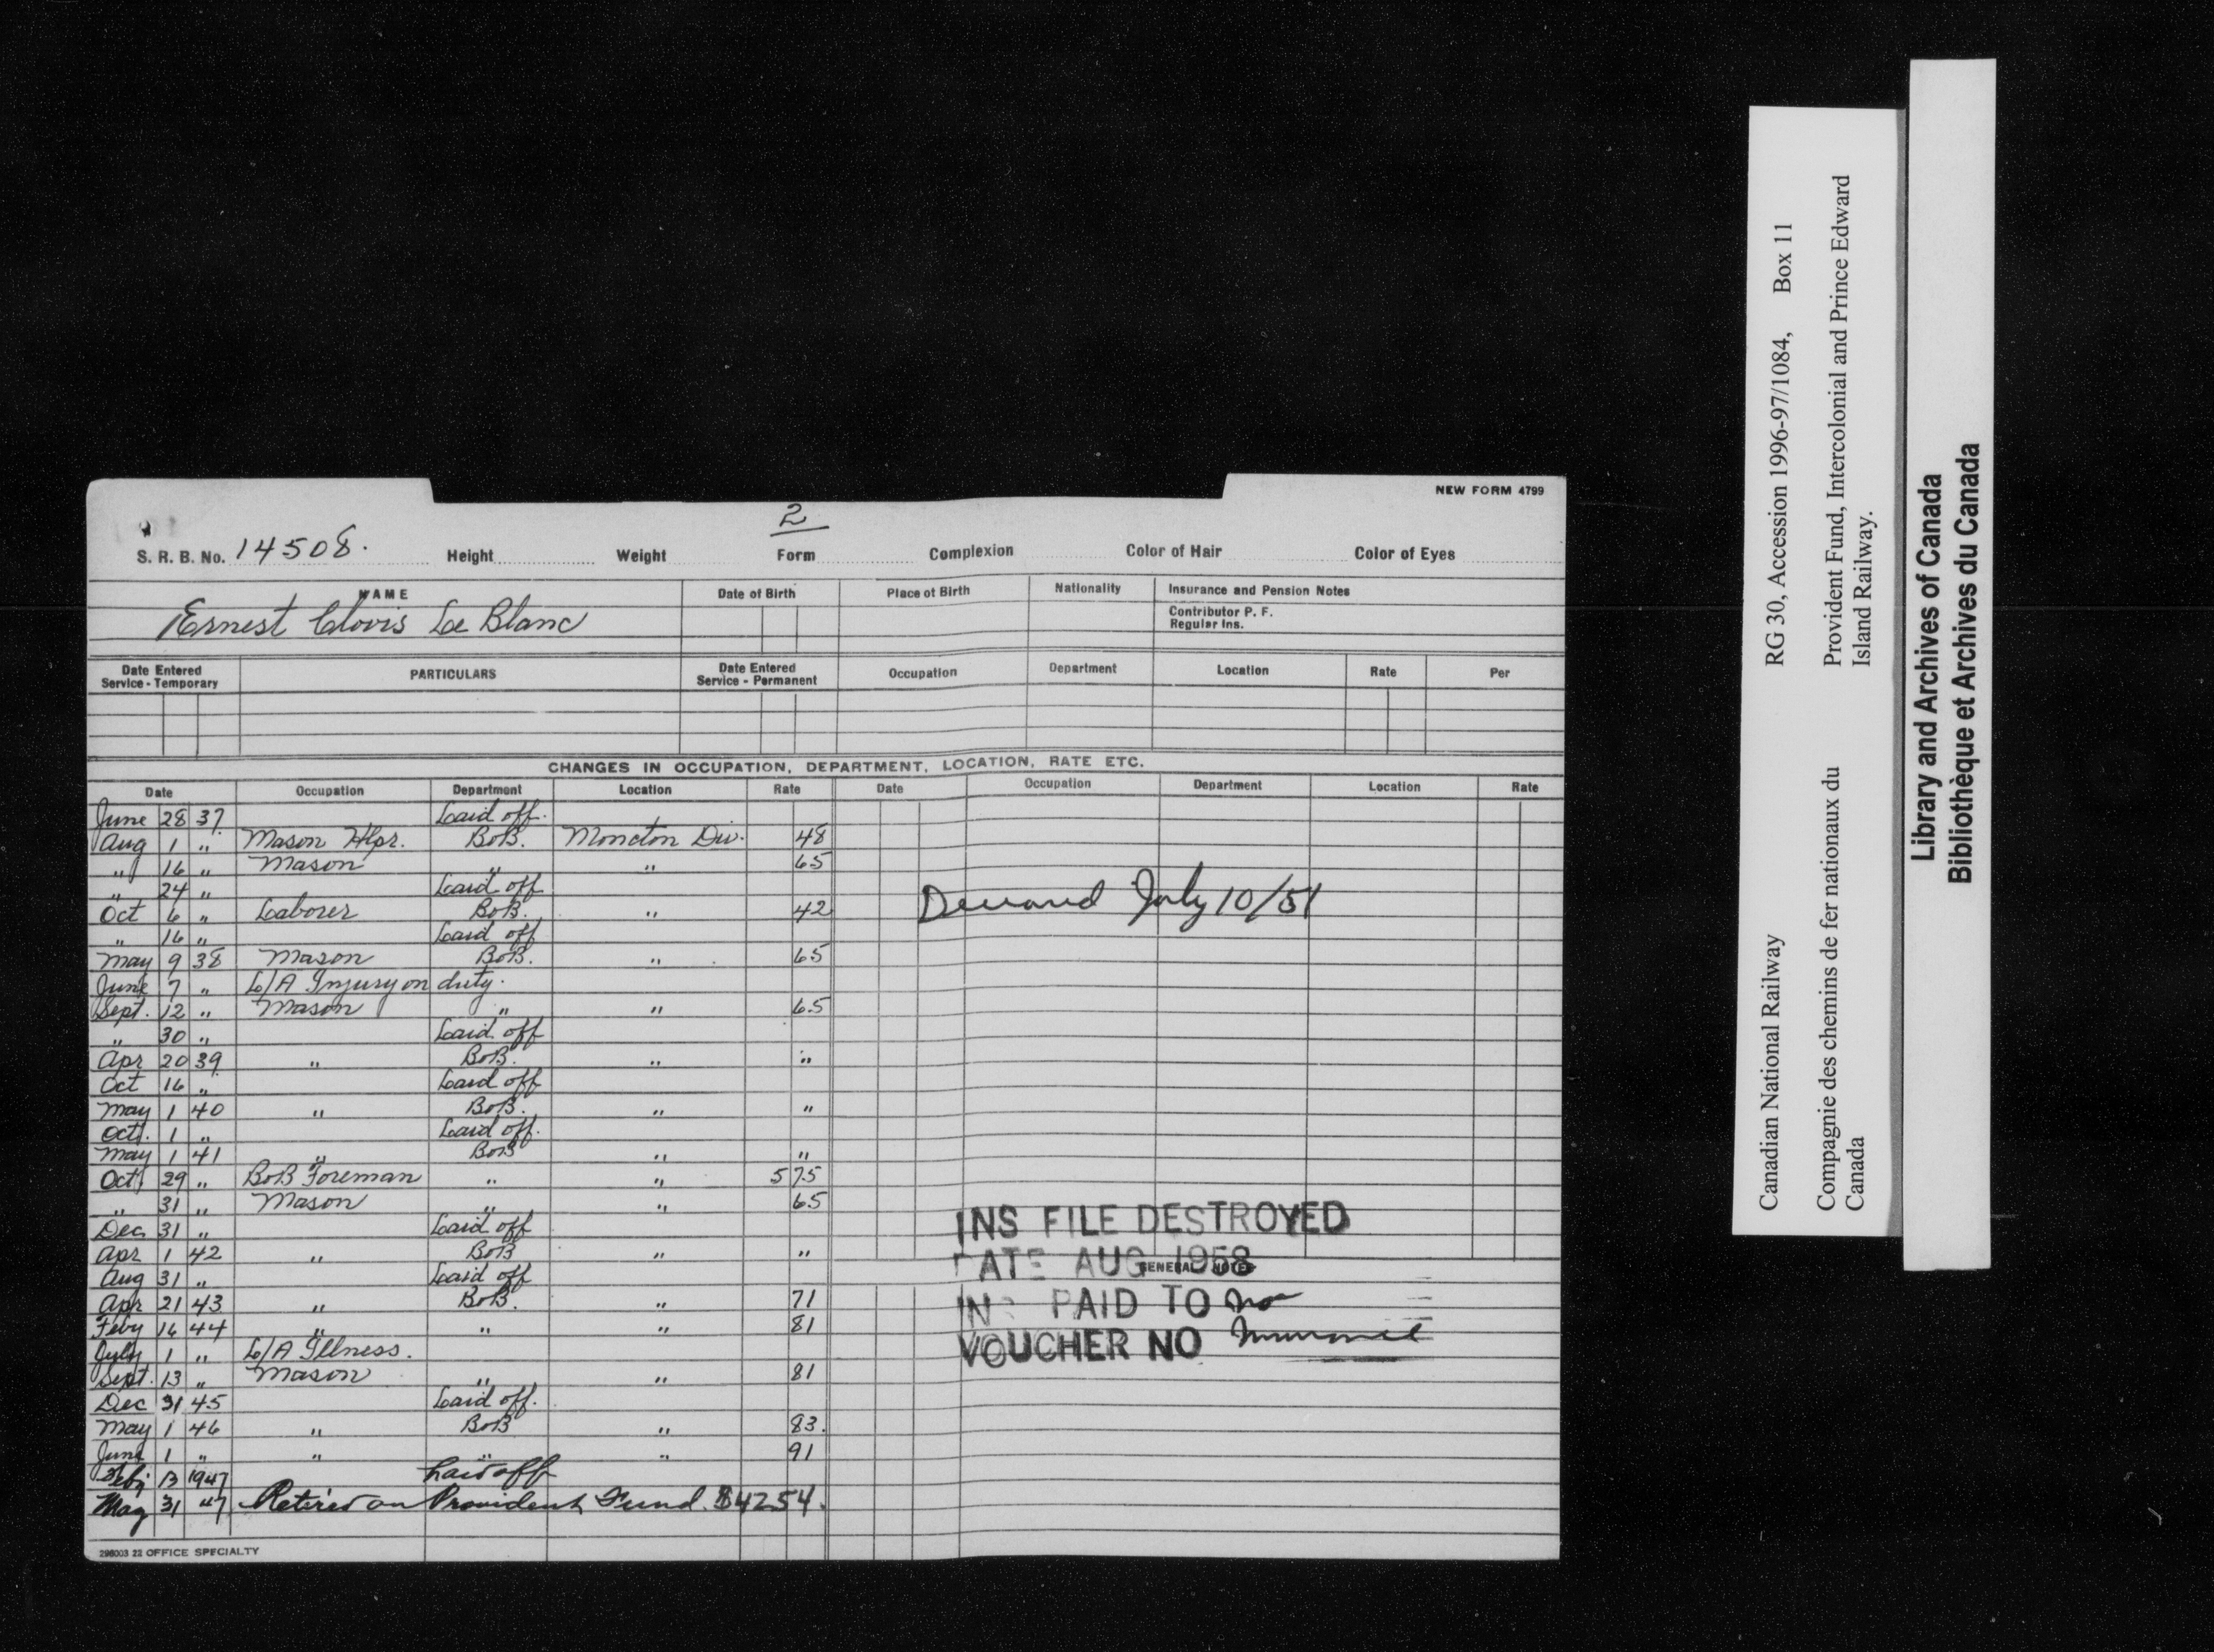 NEW FORM 4799
2
S. R. B. No. 14508. Height Weight Form Complexion Color of Hair Color of Eyes
NAME Date of Birth Place of Birth Nationality Insurance and Pension Notes
Ernest Clovis Le Blanc Contributor P. F.
Regular Ins.
Date Entered Service - Temporary PARTICULARS Date Entered Service - Permanent Occupation Department Location Rate Per
CHANGES IN OCCUPATION, DEPARTMENT, LOCATION, RATE ETC.
Date Occupation Department Location Rate Date Occupation Department Location Rate
June 28 37 Laid off.
Aug 1 " Mason Hlpr. BoB. Moncton Div. 48
" 16 " Mason " " 65
" 24 " Laid off
Oct 6 " Laborer BoB. " 42
" 16 " Laid off
May 9 38 Mason BoB. " 65
June 7 " L/A Injury on duty.
Sept. 12 " Mason " " 65
" 30 " Laid off
Apr 20 39 " BoB. " "
Oct 16 " Laid off
May 1 40 " BoB. " "
Oct. 1 " Laid off.
May 1 41 " BoB " "
Oct 29 " BoB Foreman " " 5 75
" 31 " Mason " " 65
Dec 31 " Laid off
Apr 1 42 " BoB " "
Aug 31 " Laid off
Apr 21 43 " BoB. " 71
Feby 16 44 " " " 81
July 1 " L/A Illness.
Sept. 13 " Mason " " 81
Dec 31 45 Laid off.
May 1 46 " BoB " 83.
June 1 " " " " 91
Feby 13 1947 Laid off
May 31 47 Retired on Provident Fund. $42.54.
298003 22 OFFICE SPECIALTY
July 10/51
INS FILE DESTROYED
DATE AUG 1958
GENERAL NOTES
INS PAID TO no
VOUCHER NO Insurance
Canadian National Railway RG 30, Accession 1996-97/1084, Box 11
Compagnie des chemins de fer nationaux du Canada
Provident Fund, Intercolonial and Prince Edward Island Railway.
Library and Archives of Canada
Bibliothèque et Archives du Canada